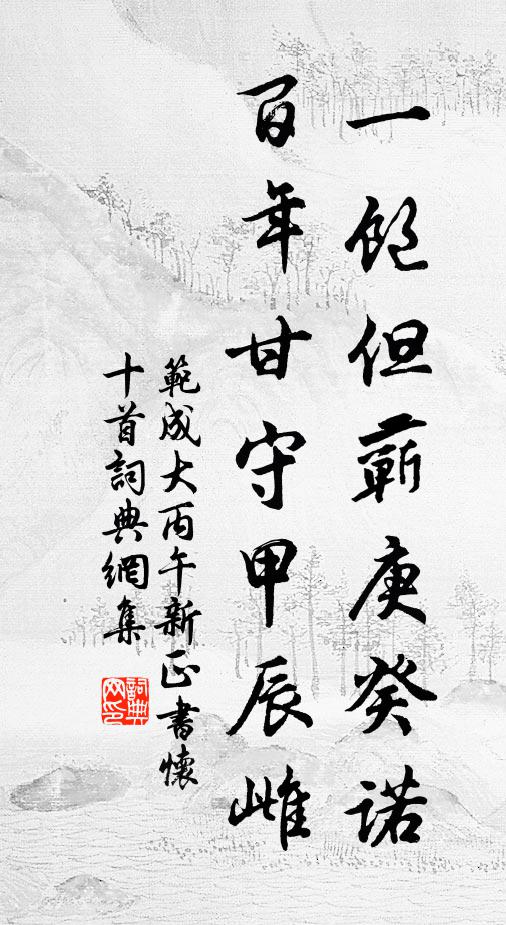 一飽但蘄庚癸諾
百年甘守甲辰雌
範成大丙午新正書懷
十首詞典網集
詞典
网印